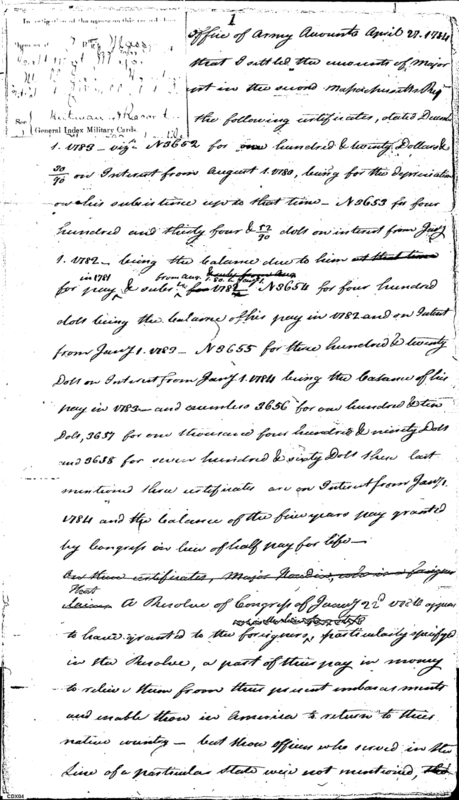 1
Office of Army Accounts April 27. 1784
that I settled the accounts of Major
in the second Massachusetts Regt
General Index Military Cards.
the following certificates, dated
1. 1783 — viz. N 3652 for one hundred & twenty Dollars &
30/90 on Interest from August 1. 1780, being for the depreciation
on his subsistence up to that time — N 3653 for four
hundred and thirty four & 52/90 dolls on interest from Jany
1. 1782 — being the balance due to him at that time
in 1781 from Aug.
for pay & subs. for 1782 N 3654 for four hundred
dolls being the balance of his pay in 1782 and on Intrest
from Jany 1. 1783 — N 3655 for three hundred & twenty
Dolls on Interest from Jany 1. 1784 being the balance of his
pay in 1783 — and numbers 3656 for one hundred & ten
Dols, 3657 for one thousand four hundred & ninety Dolls
and 3658 for seven hundred & sixty Dolls these last
mentioned three certificates are on Interest from Jany 1.
1784 and the balance of the five years pay granted
by Congress in lieu of half pay for life —
On these certificates, Major who is a foreigner
That
A Resolve of Congress of Jany 22d appears
to have granted to the foreigners, particularly specifyd
in the Resolve, a part of their pay in money
to relieve them from their present embarassments
and enable those in America to return to their
native country — but those officers who served in the
Line of a particular State were not mentioned,
CDX04